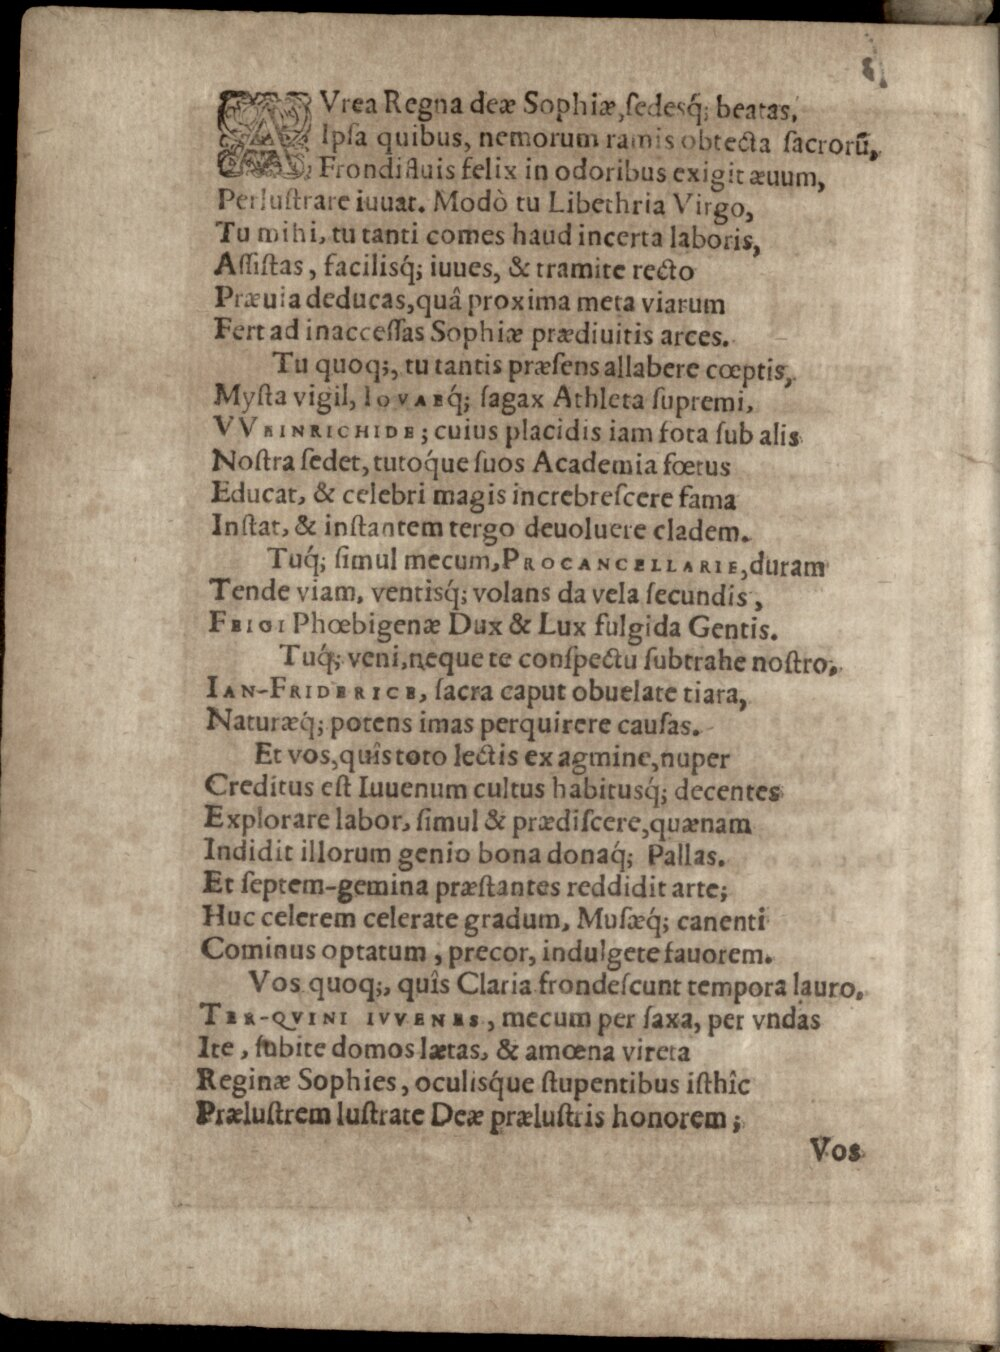 AVrea Regna deæ Sophiæ, ſedesq́; beatas,
Ipſa quibus, nemorum ramis obtecta ſacrorū,
Frondiſluis felix in odoribus exigit æuum,
Perluſtrare iuuat. Modò tu Libethria Virgo,
Tu mihi, tu tanti comes haud incerta laboris,
Aſſiſtas, facilisq́; iuues, & tramite recto
Præuia deducas, quâ proxima meta viarum
Fert ad inacceſſas Sophiæ prædiuitis arces.
Tu quoq;, tu tantis præſens allabere cœptis,
Myſta vigil, IOVAEq́; ſagax Athleta ſupremi,
VVEINRICHIDE; cuius placidis iam fota ſub alis
Noſtra ſedet, tutoq́ue ſuos Academia fœtus
Educat, & celebri magis increbreſcere fama
Inſtat, & inſtantem tergo deuoluere cladem.
Tuq́; ſimul mecum, PROCANCELLARIE, duram
Tende viam, ventisq́; volans da vela ſecundis,
FRIGI Phœbigenæ Dux & Lux fulgida Gentis.
Tuq́; veni, neque te conſpectu ſubtrahe noſtro,
IAN-FRIDERICE, ſacra caput obuelate tiara,
Naturæq́; potens imas perquirere cauſas.
Et vos, quîs toto lectis ex agmine, nuper
Creditus eſt Iuuenum cultus habitusq́; decentes
Explorare labor, ſimul & prædiſcere, quænam
Indidit illorum genio bona donaq́; Pallas.
Et ſeptem-gemina præſtantes reddidit arte;
Huc celerem celerate gradum, Muſæq́; canenti
Cominus optatum, precor, indulgete fauorem.
Vos quoq;, quîs Claria frondeſcunt tempora lauro,
TER-QVINI IVVENES, mecum per ſaxa, per vndas
Ite, ſubite domos lætas, & amœna vireta
Reginæ Sophies, oculisq́ue ſtupentibus iſthîc
Præluſtrem luſtrate Deæ præluſtris honorem;
Vos